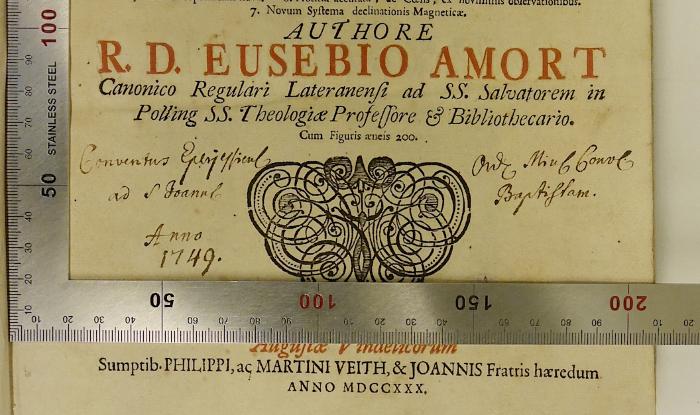 7. Novum Systema declinationis Magneticæ.
AUTHORE
R. D. EUSEBIO AMORT
Canonico Regulari Lateranensi ad SS. Salvatorem in
Polling SS. Theologiæ Professore & Bibliothecario.
Cum Figuris æneis 200.
Conventus Eperjessiens
Ord: Min: Conv:
ad S Joannē
Baptistam.
Anno
1749.
STAINLESS STEEL
100
90
80
70
60
50
40
30
20
10
10 20 30 40 50 60 70 80 90 100 10 20 30 40 150 60 70 80 90 200 10 20
Augustæ Vindelicorum
Sumptib. PHILIPPI, ac MARTINI VEITH, & JOANNIS Fratris hæredum
ANNO MDCCXXX.